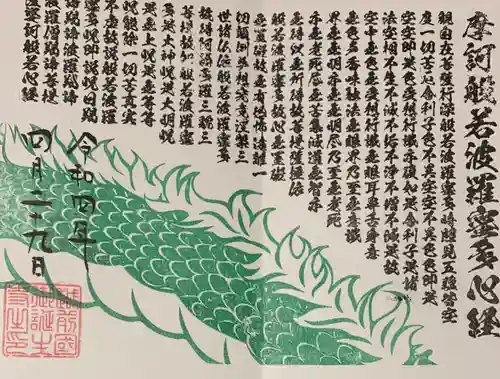 摩訶般若波羅蜜多心経
観自在菩薩行深般若波羅蜜多時照見五蘊皆空
度一切苦厄舎利子色不異空空不異色色即是
空空即是色受想行識亦復如是舎利子是諸
法空相不生不滅不垢不浄不増不減是故
空中無色無受想行識無眼耳鼻舌身意
無色声香味触法無眼界乃至無意識
界無無明亦無無明尽乃至無老死
亦無老死尽無苦集滅道無智亦
無得以無所得故菩提薩埵依
般若波羅蜜多故心無罣礙
無罣礙故無有恐怖遠離一
切顛倒夢想究竟涅槃三
世諸仏依般若波羅蜜多
故得阿耨多羅三藐三
菩提故知般若波羅蜜
多是大神呪是大明呪
是無上呪是無等等
呪能除一切苦真実
不虚故説般若波羅
蜜多呪即説呪曰羯
諦羯諦波羅羯諦
波羅僧羯諦菩提
薩婆訶般若心経
令和四年
四月二十九日
越前國
御誕生
寺之印